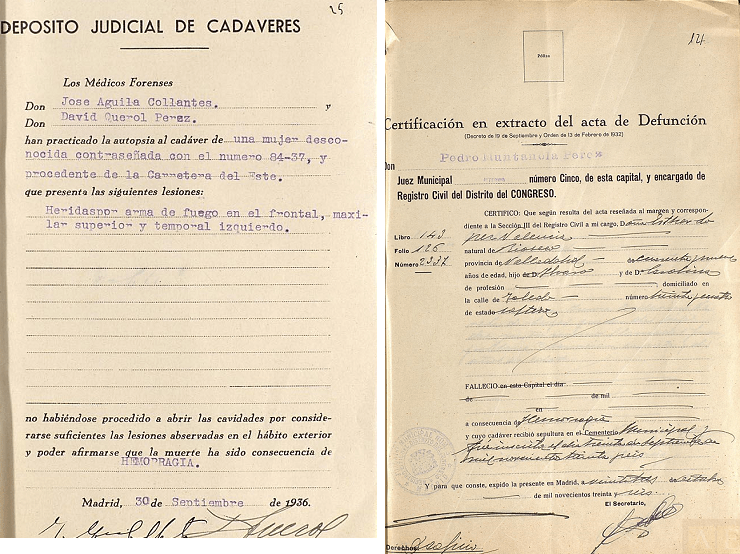 25
DEPOSITO JUDICIAL DE CADAVERES
Los Médicos Forenses
Don Jose Aguila Collantes. y
Don David Querol Perez.
han practicado la autopsia al cadáver de una mujer desco-
nocida contraseñada con el numero 84-37, y
procedente de la Carretera del Este.
que presenta las siguientes lesiones:
Heridaspor arma de fuego en el frontal, maxi-
lar superior y temporal izquierdo.
no habiéndose procedido a abrir las cavidades por conside-
rarse suficientes las lesiones observadas en el hábito exterior
y poder afirmarse que la muerte ha sido consecuencia de
HEMORRAGIA.
Madrid, 30 de Septiembre de 1936.
14
Póliza
Certificación en extracto del acta de Defunción
(Decreto de 19 de Septiembre y Orden de 13 de Febrero de 1932)
Don Pedro Muntañola Perez
Juez Municipal número Cinco, de esta capital, y encargado de
Registro Civil del Distrito del CONGRESO.
CERTIFICO: Que según resulta del acta reseñada al margen y correspon-
diente a la Sección III del Registro Civil a mi cargo, D
Libro 143
Folio 126 natural de Rioseco
Número 2337 provincia de Valladolid de cincuenta y
años de edad, hijo de D. Alvaro y de D.ª Carolina
de profesión domiciliado en
la calle de Toledo número treinta y cuatro
de estado soltera
FALLECIO en esta Capital el día
de de mil
en
a consecuencia de Hemorragia
y cuyo cadáver recibió sepultura en el Cementerio Municipal y
el dia treinta de septiembre de
mil novecientos treinta y seis
Y para que conste, expido la presente en Madrid, a veintitres de octubre
de mil novecientos treinta y seis
El Secretario,
Derechos